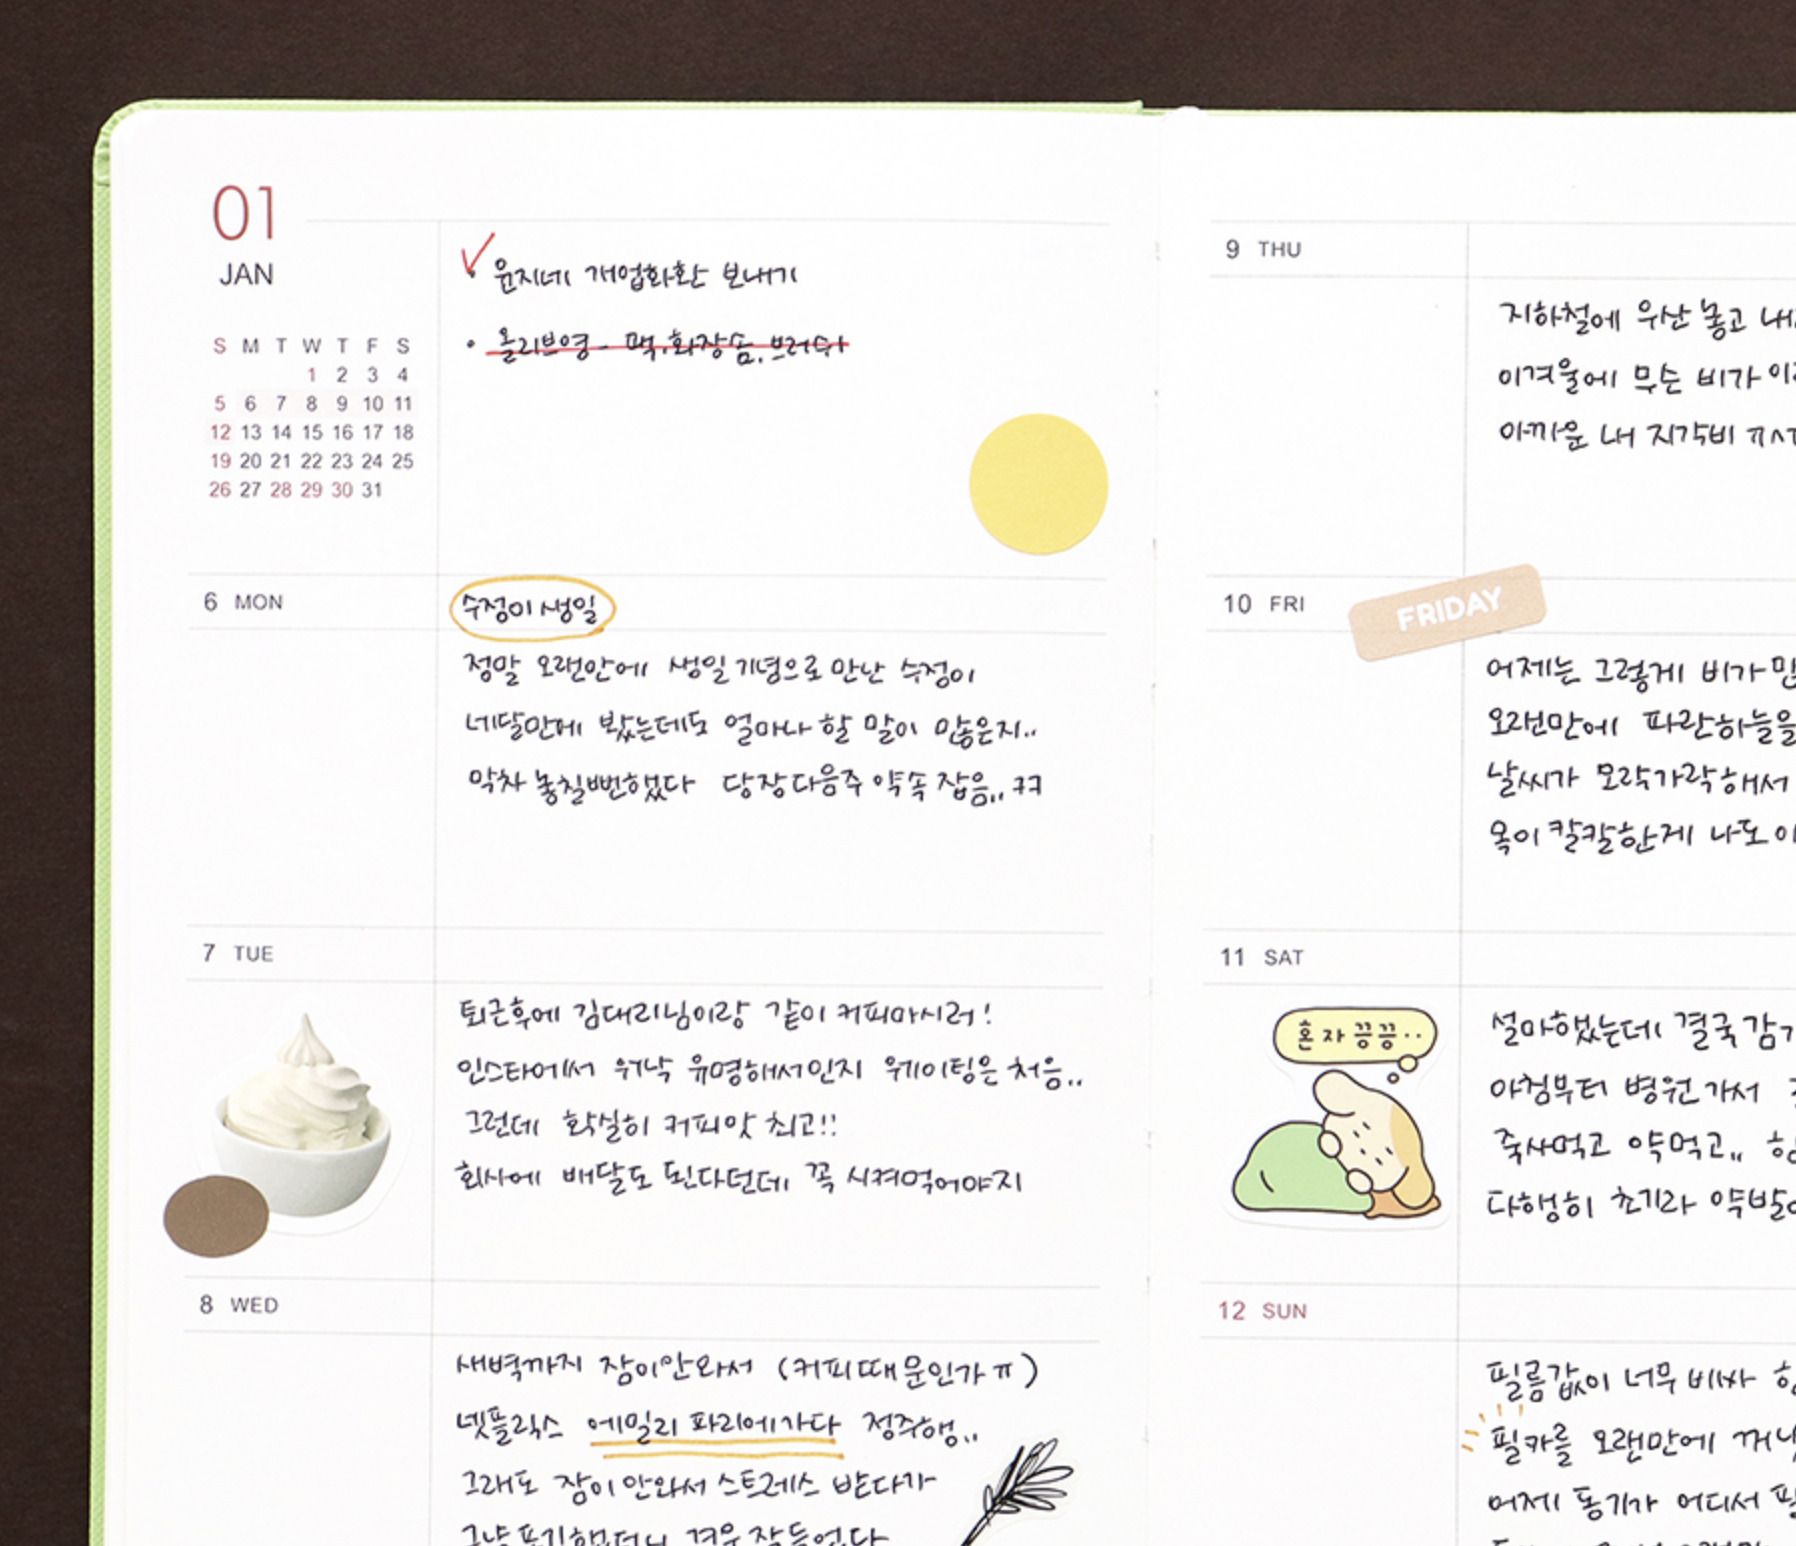 01
JAN
S M T W T F S
1 2 3 4
5 6 7 8 9 10 11
12 13 14 15 16 17 18
19 20 21 22 23 24 25
26 27 28 29 30 31
• 윤지네 개업화환 보내기
• 올리브영 - 팩, 화장솜, 브러쉬
6 MON
수정이 생일
정말 오랜만에 생일기념으로 만난 수정이
네달만에 봤는데도 얼마나 할 말이 많은지..
막차 놓칠뻔했다 당장 다음주 약속 잡음.. ㅋㅋ
7 TUE
퇴근후에 김대리님이랑 같이 커피마시러!
인스타에서 워낙 유명해서인지 웨이팅은 처음..
그런데 확실히 커피맛 최고!!
회사에 배달도 된다던데 꼭 시켜먹어야지
8 WED
새벽까지 잠이안와서 (커피때문인가ㅠ)
넷플릭스 에밀리 파리에가다 정주행..
그래도 잠이 안와서 스트레스 받다가
그냥 포기했더니 겨우 잠들었다
9 THU
지하철에 우산 놓고
이겨울에 무슨 비가
아까운 내 지각비
10 FRI
FRIDAY
어제는 그렇게 비가
오랜만에 파란하늘을
날씨가 오락가락해서
목이 칼칼한게 나도
11 SAT
혼자 끙끙..
설마했는데 결국
아침부터 병원가서
죽사먹고 약먹고..
다행히 초기라
12 SUN
필름값이 너무 비싸
필카를 오랜만에
어제 동기가 어디서